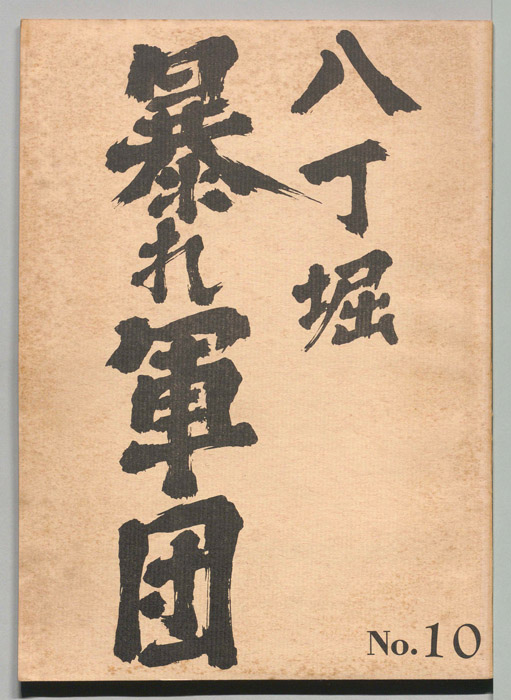 八丁堀
暴れ軍団
No.10